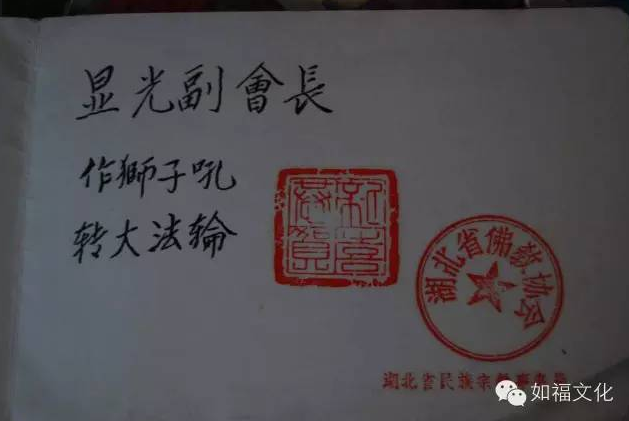 显光副會長
作獅子吼
转大法輪
湖北省佛教协会
湖北省民族宗教事务
如福文化